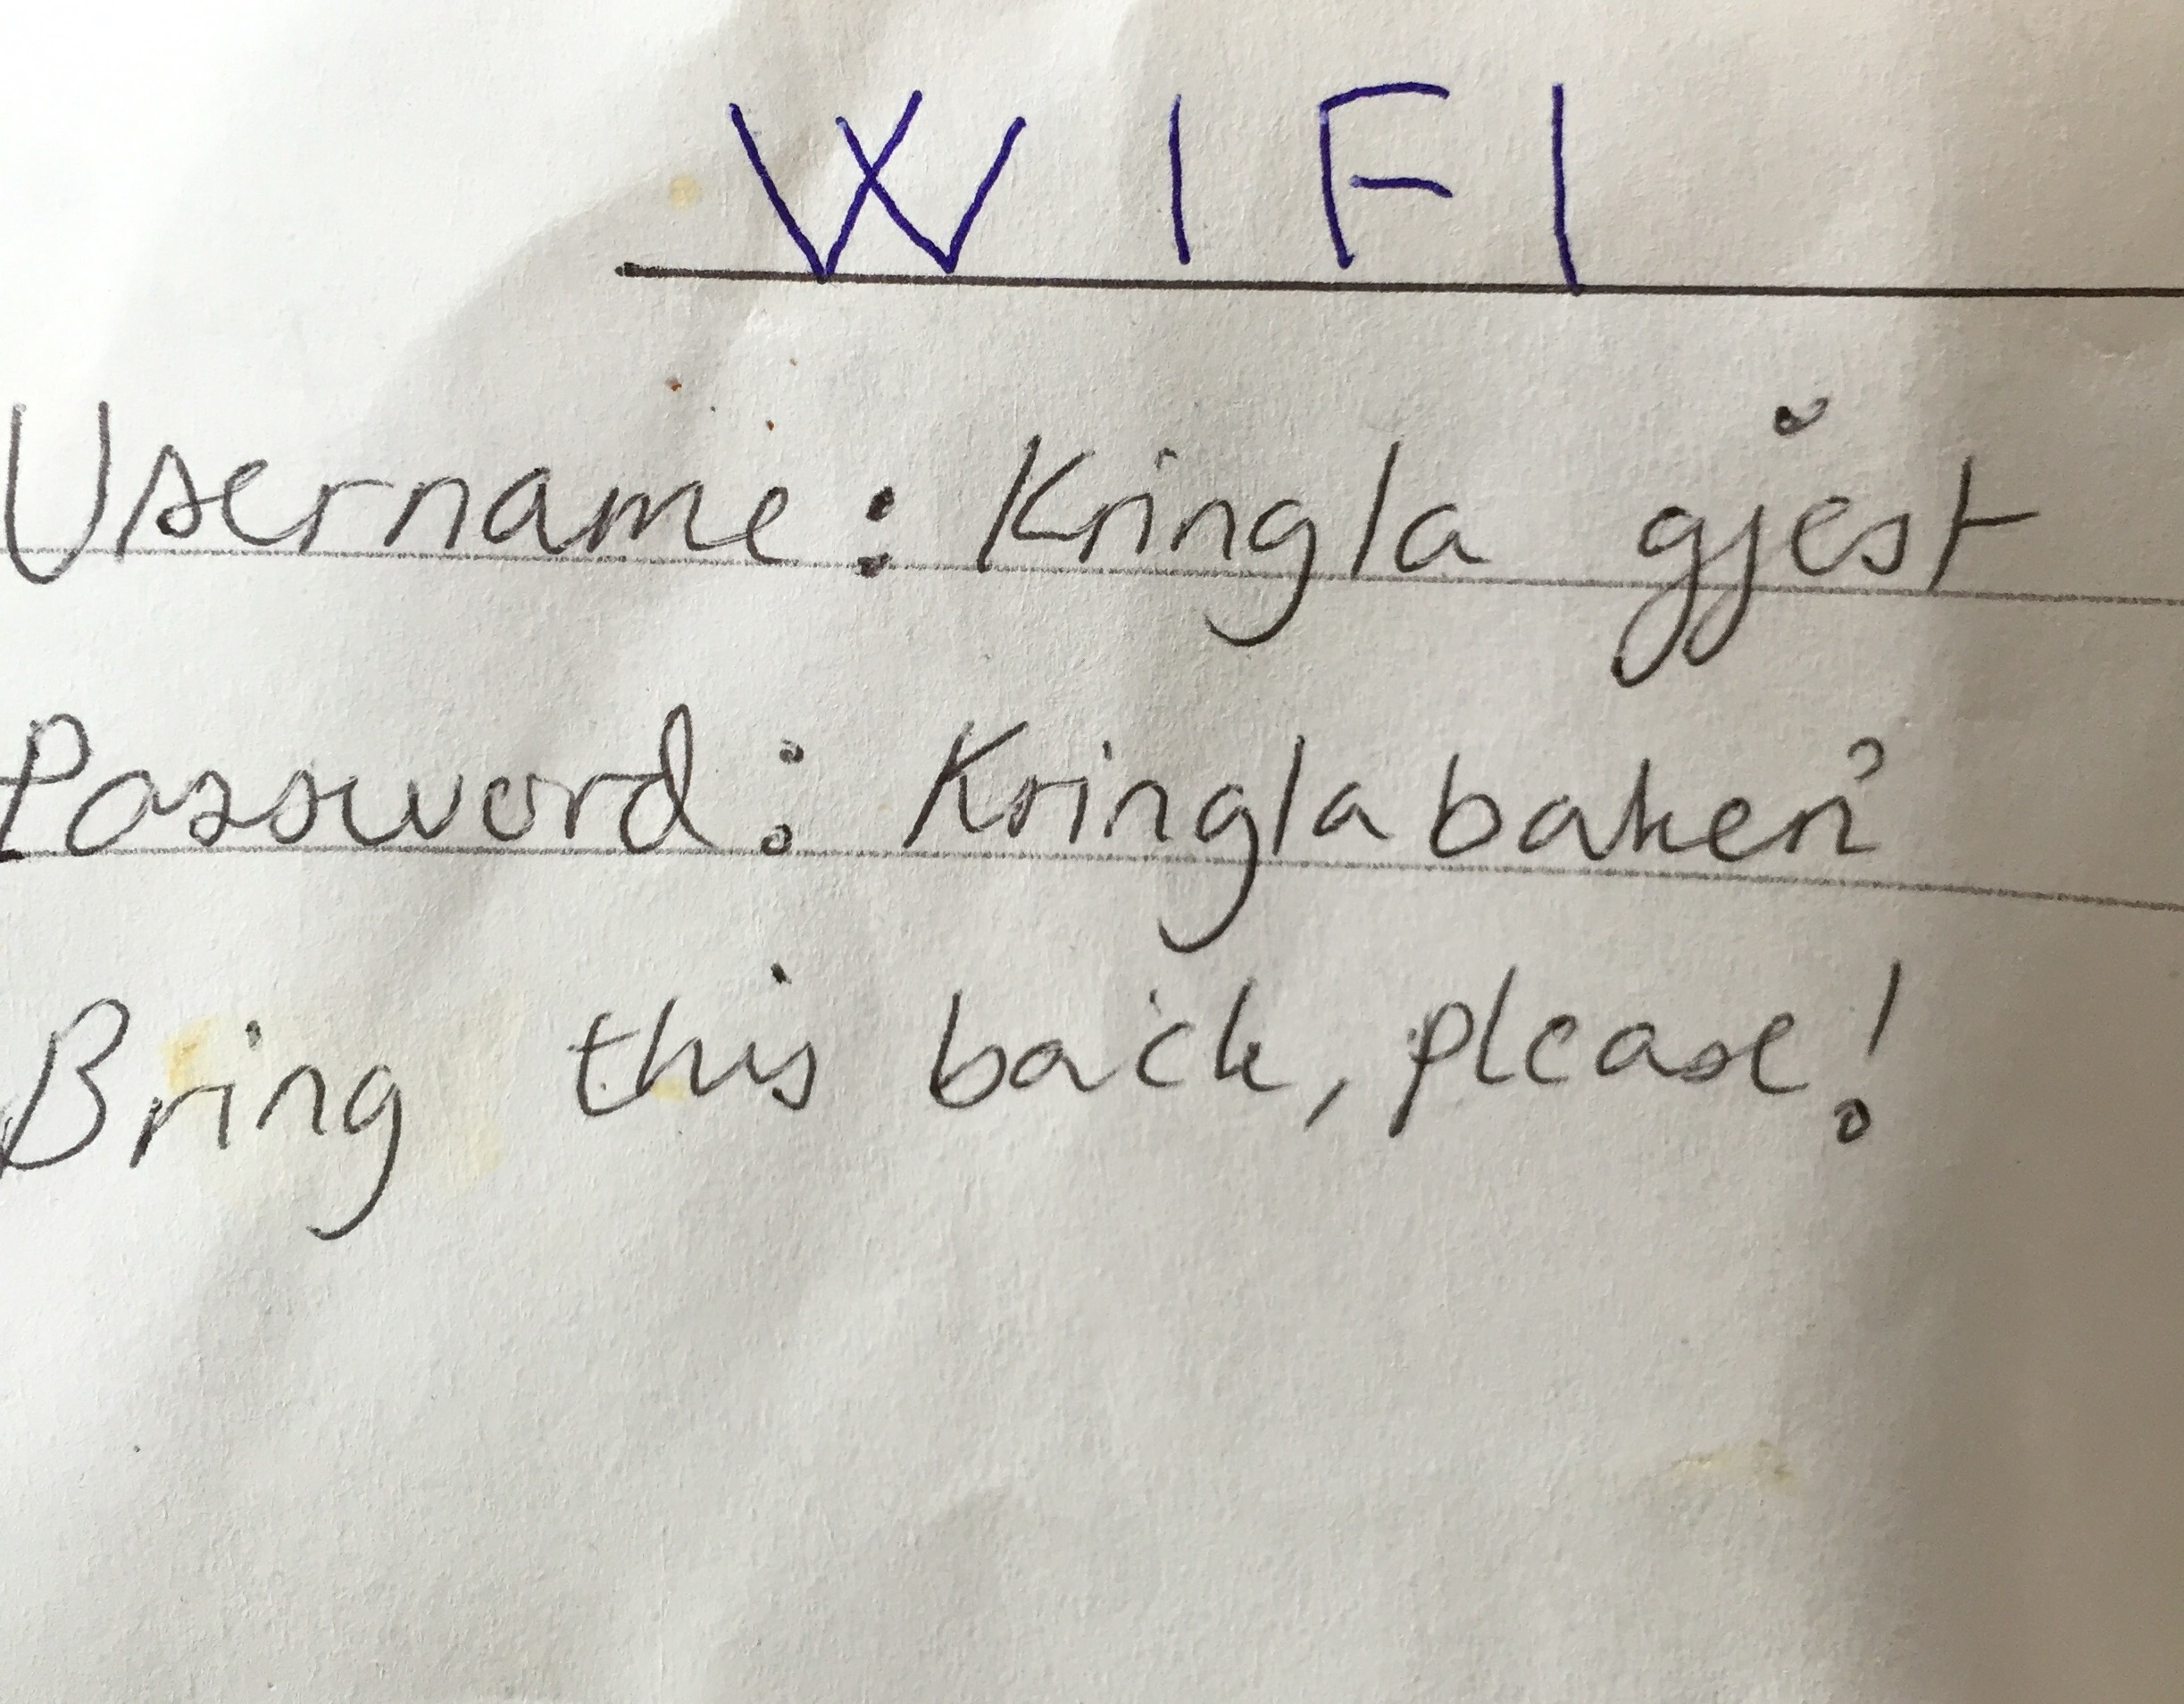 WIFI
Username: Kringla gjest
Password: Kringlabakeri
Bring this back, please!